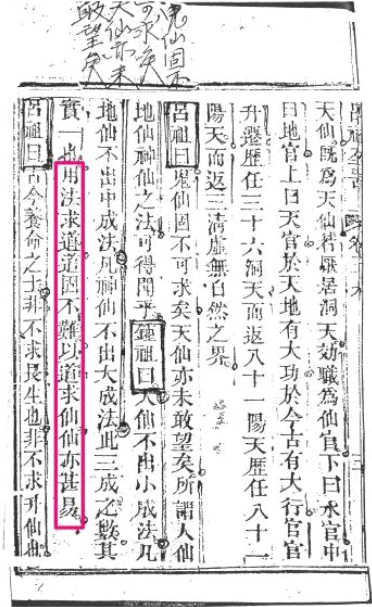 鬼仙固不
可求矣
天仙亦未
敢望矣
天仙既爲天仙若厭居洞天効職爲仙官下曰水官中
曰地官上曰天官於天地有大功於今古有大行官官
升遷歷任三十六洞天而返八十一陽天歷任八十一
陽天而返三清虛無自然之界
呂祖曰鬼仙固不可求矣天仙亦未敢望矣所謂人仙
地仙神仙之法可得聞乎鍾祖曰人仙不出小成法凡
地仙不出中成法凡神仙不出大成法此三成之數其
實一也用法求道道固不難以道求仙仙亦甚易
呂祖曰古今養命之士非不求長生也非不求升仙也